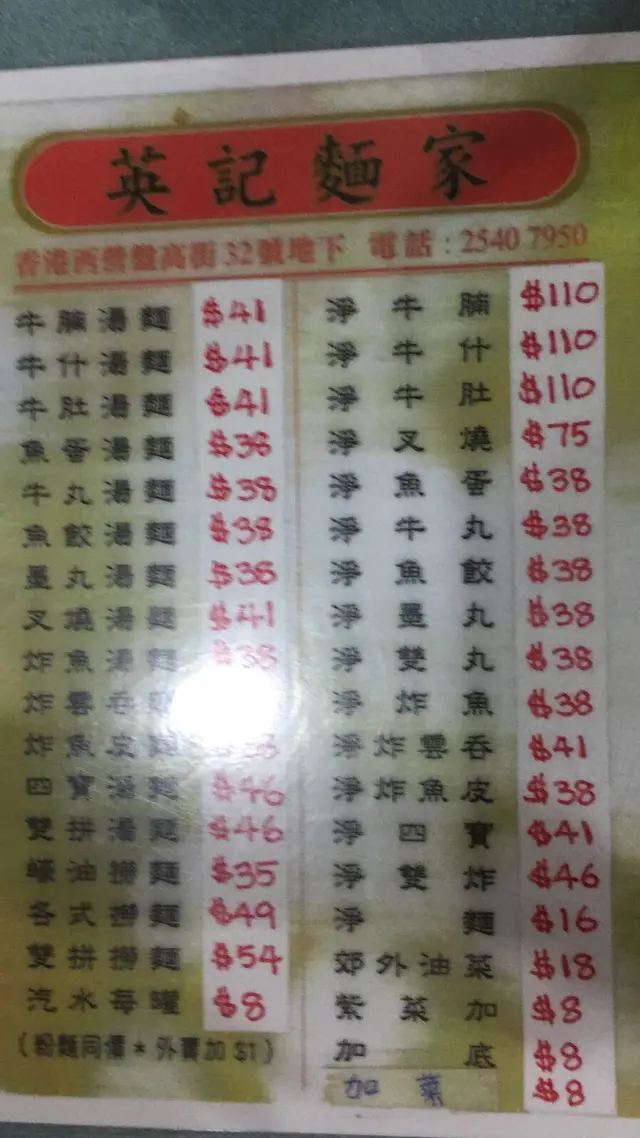 英記麵家
香港西營盤高街32號地下 電話：2540 7950
牛腩湯麵 $41
牛什湯麵 $41
牛肚湯麵 $41
魚蛋湯麵 $38
牛丸湯麵 $38
魚餃湯麵 $38
墨丸湯麵 $38
叉燒湯麵 $41
炸魚湯麵 $38
炸雲吞
炸魚皮麵
四寶湯麵 $46
雙拼湯麵 $46
蠔油撈麵 $35
各式撈麵 $49
雙拼撈麵 $54
汽水每罐 $8
(粉麵同價*外賣加$1)
淨牛腩 $110
淨牛什 $110
淨牛肚 $110
淨叉燒 $75
淨魚蛋 $38
淨牛丸 $38
淨魚餃 $38
淨墨丸 $38
淨雙丸 $38
淨炸魚 $38
淨炸雲吞 $41
淨炸魚皮 $38
淨四寶 $41
淨雙炸 $46
淨麵 $16
郊外油菜 $18
紫菜加 $8
加底 $8
加菜 $8